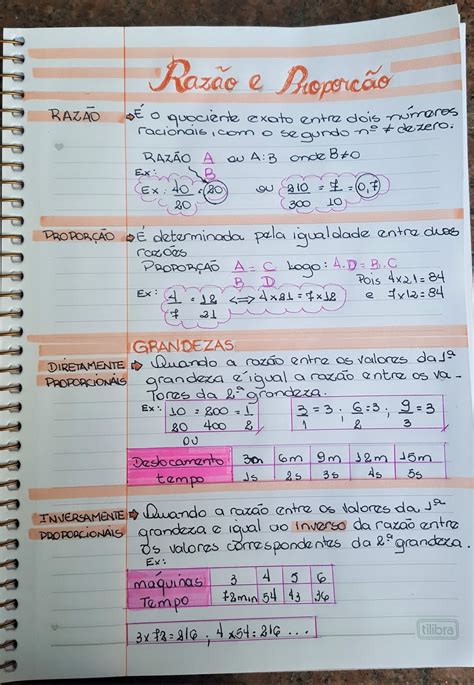 Razão e Proporção
RAZÃO ⇨ É o quociente exato entre dois números
racionais, com o segundo nº ≠ de zero.
RAZÃO A/B ou A:B onde B≠0
Ex:
Ex: 40/20 = 20 ou 210/300 = 7/10 = 0,7
PROPORÇÃO ⇨ É determinada pela igualdade entre duas
razões
PROPORÇÃO A/B = C/D Logo: A.D = B.C
Pois 4x21=84
Ex: 4/7 = 12/21 ⟺ 4x21 = 7x12 e 7x12=84
GRANDEZAS
DIRETAMENTE PROPORCIONAIS ⇨ Quando a razão entre os valores da 1ª
grandeza é igual a razão entre os va-
lores da 2ª grandeza.
Ex: 10/20 = 200/400 = 1/2 3/1 = 3 ; 6/2 = 3 ; 9/3 = 3
OU
Deslocamento 3m 6m 9m 12m 15m
tempo 1s 2s 3s 4s 5s
INVERSAMENTE PROPORCIONAIS ⇨ Quando a razão entre os valores da 1ª
grandeza e igual ao inverso da razão entre
os valores correspondentes da 2ª grandeza.
Ex:
máquinas 3 4 5 6
Tempo 72min 54 43 36
3x72=216 ; 4x54=216 ...
tilibra